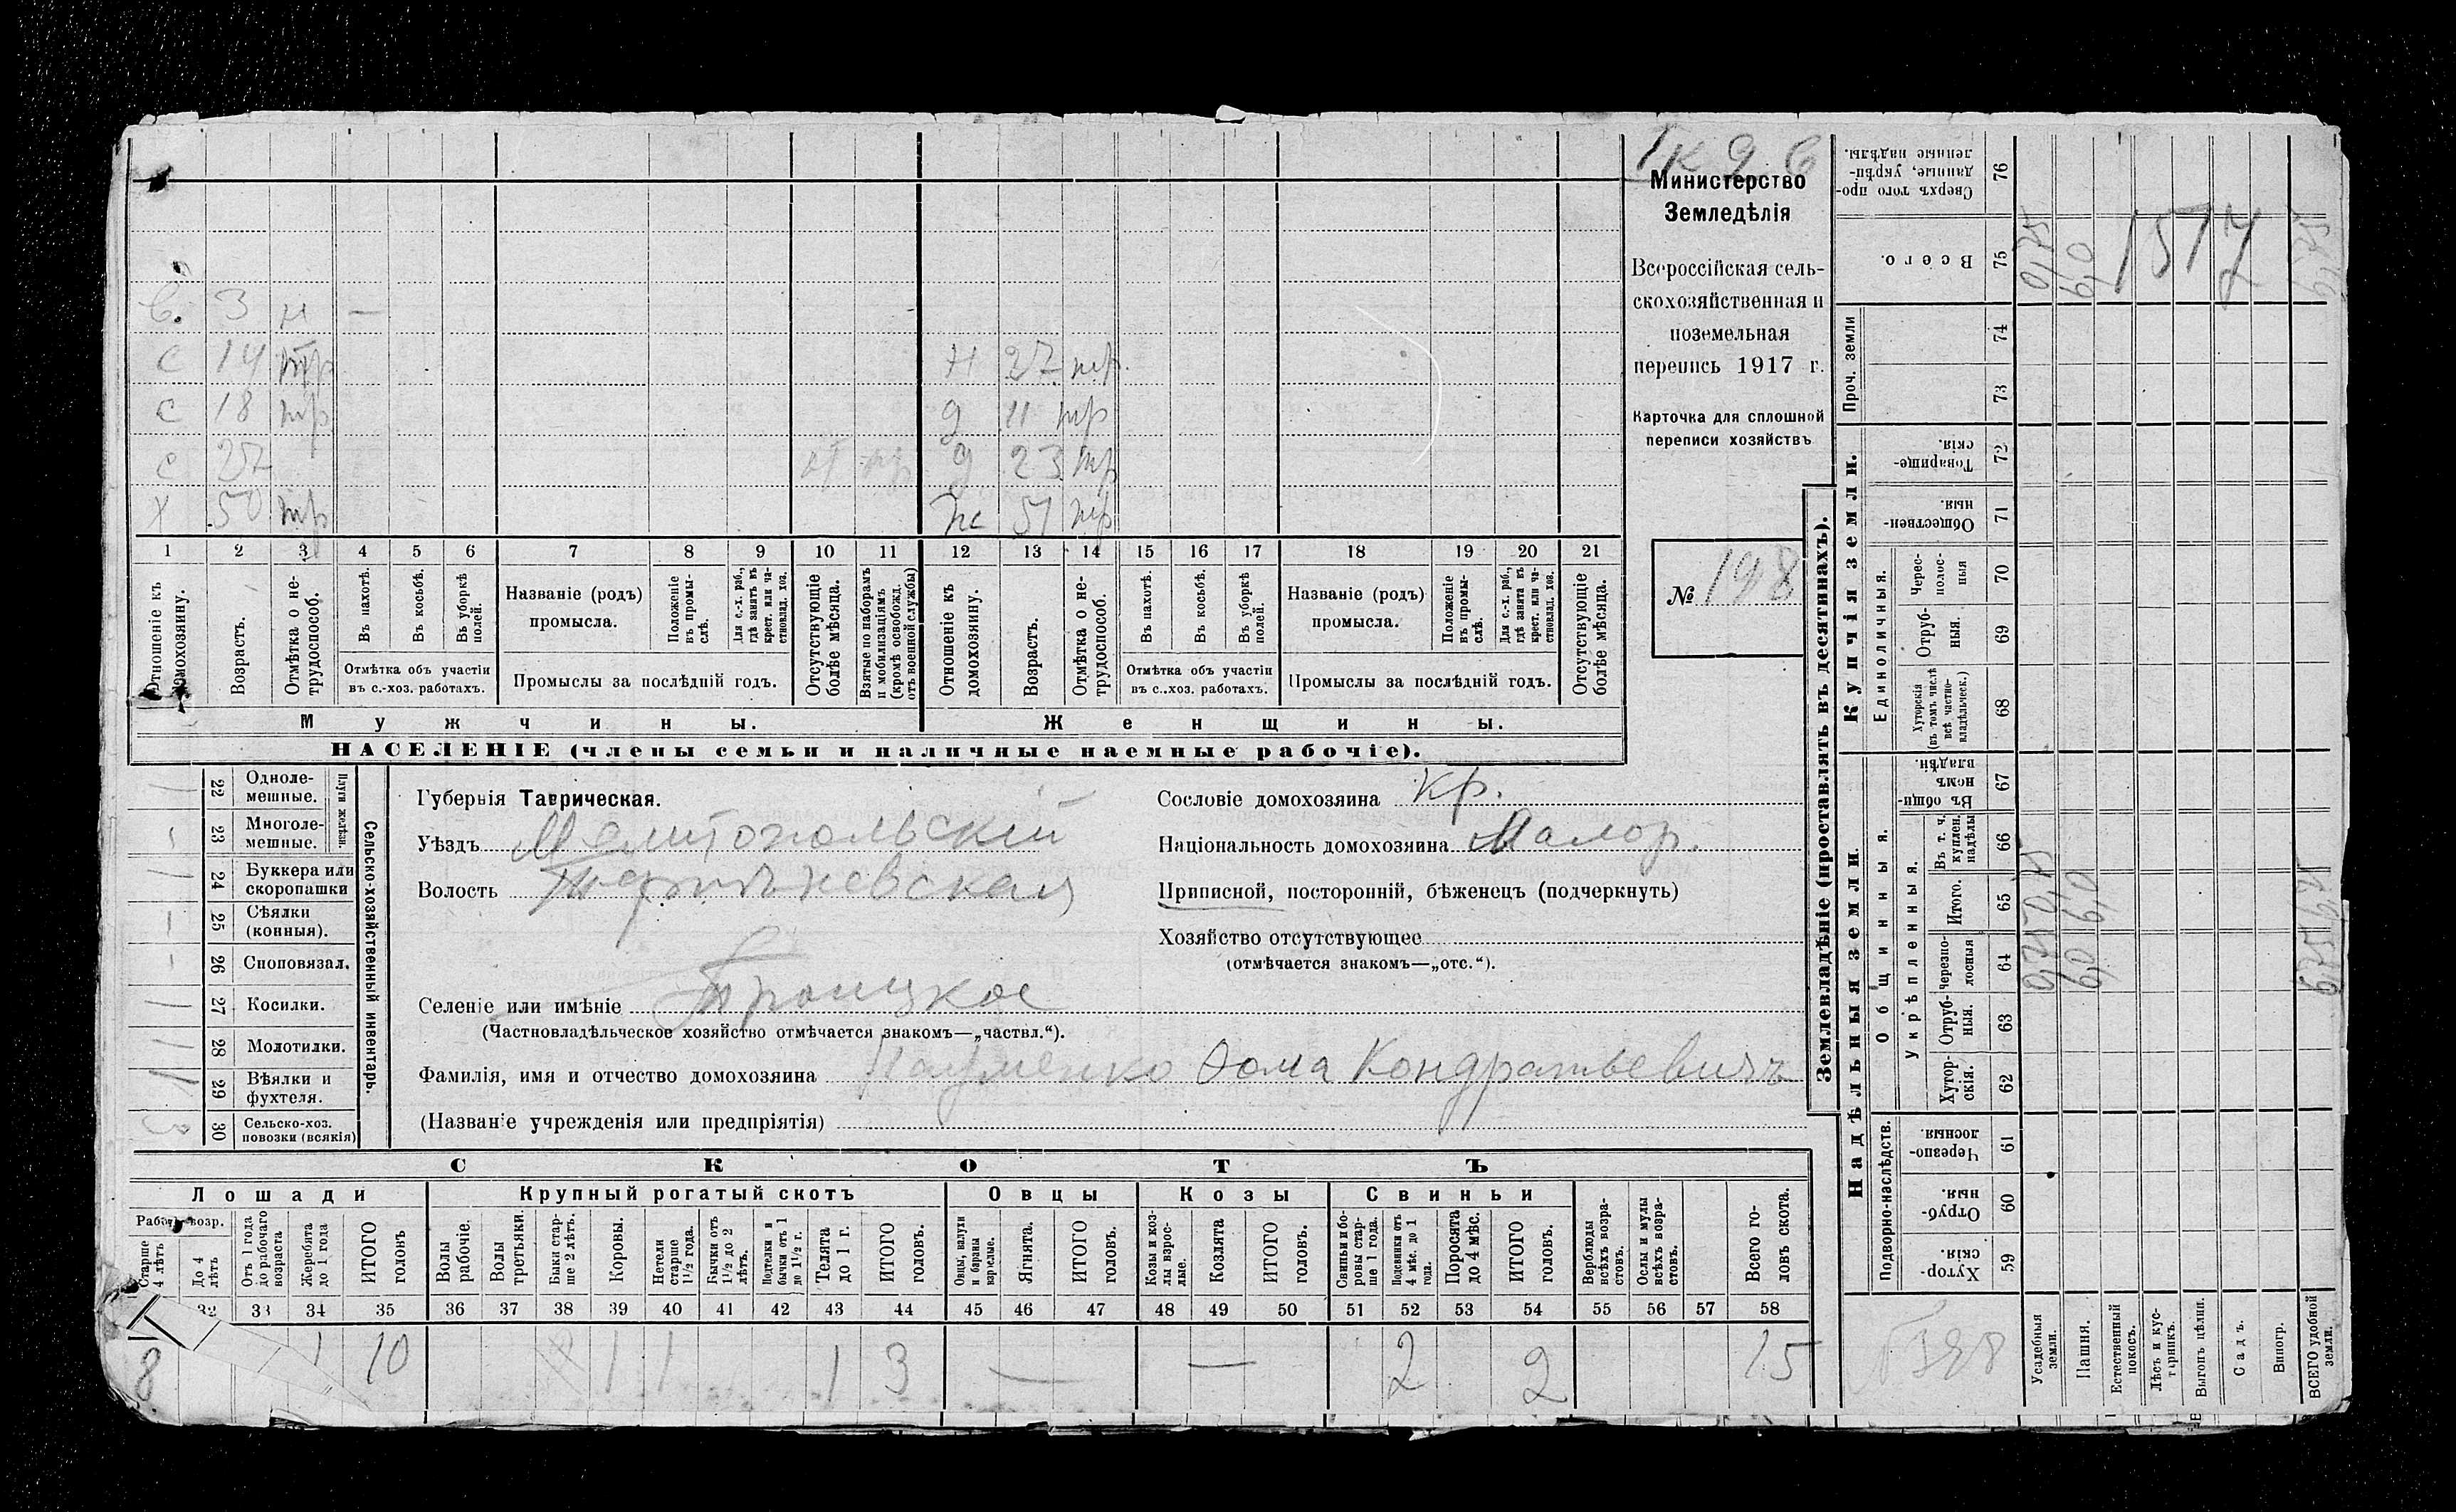 1 к 9 6
Министерство
Земледѣлія
Всероссійская сель-
скохозяйственная и
поземельная
перепись 1917 г.
Карточка для сплошной
переписи хозяйствъ
№ 198
3 н —
с 14 тр н 27 тр.
с 18 тр д 11 тр
с 27 д 23 тр
х 50 тр ж 51 тр
1 2 3 4 5 6 7 8 9 10 11 12 13 14 15 16 17 18 19 20 21
Отношеніе къ домохозяину.
Возрастъ.
Отмѣтка о не-
трудоспособ.
Въ пахотѣ.
Въ косьбѣ.
Въ уборкѣ
полей.
Отмѣтка объ участіи
въ с.-хоз. работахъ.
Названіе (родъ)
промысла.
Положеніе
въ промы-
слѣ.
Для с.-х. раб.,
гдѣ занятъ въ
крест. или ча-
стновлад. хоз.
Промыслы за послѣдній годъ.
Отсутствующіе
болѣе мѣсяца.
Взятые по наборамъ
и мобилизаціямъ
(кромѣ освобожд.
отъ военной службы)
Отношеніе къ
домохозяину.
Возрастъ.
Отмѣтка о не-
трудоспособ.
Въ пахотѣ.
Въ косьбѣ.
Въ уборкѣ
полей.
Отмѣтка объ участіи
въ с..хоз. работахъ.
Названіе (родъ)
промысла.
Положеніе
въ промы-
слѣ.
Для с.-х. раб.,
гдѣ занята въ
крест. или ча-
стновлад. хоз.
Промыслы за послѣдній годъ.
Отсутствующіе
болѣе мѣсяца.
Мужчины.
Женщины.
НАСЕЛЕНІЕ (члены семьи и наличные наемные рабочіе).
Сельско-хозяйственный инвентарь.
Плуги желѣзн.
1 22 Одноле-
мешные.
- 23 Многоле-
мешные.
1 24 Буккера или
скоропашки
- 25 Сѣялки
(конныя).
- 26 Сноповязал.
1 27 Косилки.
1 28 Молотилки.
1 29 Вѣялки и
фухтеля.
3 30 Сельско-хоз.
повозки (всякія)
Губернія Таврическая.
Уѣздъ Мелитопольскій
Волость
Селеніе или имѣніе Троицкое
(Частновладѣльческое хозяйство отмѣчается знакомъ—„частвл.“).
Фамилія, имя и отчество домохозяина Науменко Фома Кондратьевичъ
(Названіе учрежденія или предпріятія)
Сословіе домохозяина кр.
Національность домохозяина Малор.
Приписной, посторонній, бѣженецъ (подчеркнуть)
Хозяйство отсутствующее
(отмѣчается знакомъ—„отс.“).
СКОТЪ
Лошади
Крупный рогатый скотъ
Овцы
Козы
Свиньи
Старше
4 лѣтъ
До 4
лѣтъ
Отъ 1 года
до рабочаго
возраста
Жеребята
до 1 года
ИТОГО
головъ
Волы
рабочіе.
Волы
третьяки.
Быки стар-
ше 2 лѣтъ.
Коровы.
Нетели
старше
1½ года.
Бычки отъ
1½ до 2
лѣтъ.
Подтелки и
бычки отъ 1
до 1½ г.
Телята
до 1 г.
ИТОГО
головъ.
Овцы, валухи
и бараны
взрослые.
Ягнята.
ИТОГО
головъ.
Козы и коз-
лы взрос-
лые.
Козлята
ИТОГО
головъ.
Свиньи и бо-
ровы стар-
ше 1 года.
Подсвинки отъ
4 мѣс. до 1
года.
Поросята
до 4 мѣс.
ИТОГО
головъ.
Верблюды
всѣхъ возра-
стовъ.
Ослы и мулы
всѣхъ возра-
стовъ.
Всего го-
ловъ скота.
32 33 34 35 36 37 38 39 40 41 42 43 44 45 46 47 48 49 50 51 52 53 54 55 56 57 58
8 1 10 1 1 1 3 — — 2 2 15
Землевладѣніе (проставлять въ десятинахъ).
Купчія земли.
Надѣльныя земли.
Сверхъ того про-
данные, укрѣп-
ленные надѣлы.
76
Всего.
75
Проч. земли
74
73
Товарище-
скія.
72
Обществен-
ныя.
71
Единоличныя.
Черес-
полос-
ныя
70
Отруб-
ныя.
69
Хуторскія
(въ томъ числѣ
всѣ частно-
владѣльческ.)
68
Общинныя.
Въ общи-
номъ
владѣн.
67
Укрѣпленныя.
Въ т. ч.
куплен.
надѣлы
66
Итого.
65
Черезпо-
лосныя
64
Отруб-
ныя.
63
Хутор-
скія.
62
Подворно-наслѣдств.
Черезпо-
лосныя.
61
Отруб-
ныя.
60
Хутор-
скія.
59
Усадебныя
земли.
Пашня.
Естественный
покосъ.
Лѣсъ и кус-
тарникъ.
Выгонъ цѣлин.
Садъ.
Виногр.
ВСЕГО удобной
земли.
0,75 6,0 1517 6,75
0,75 0,75
6,0 6,0
6,75 6,75